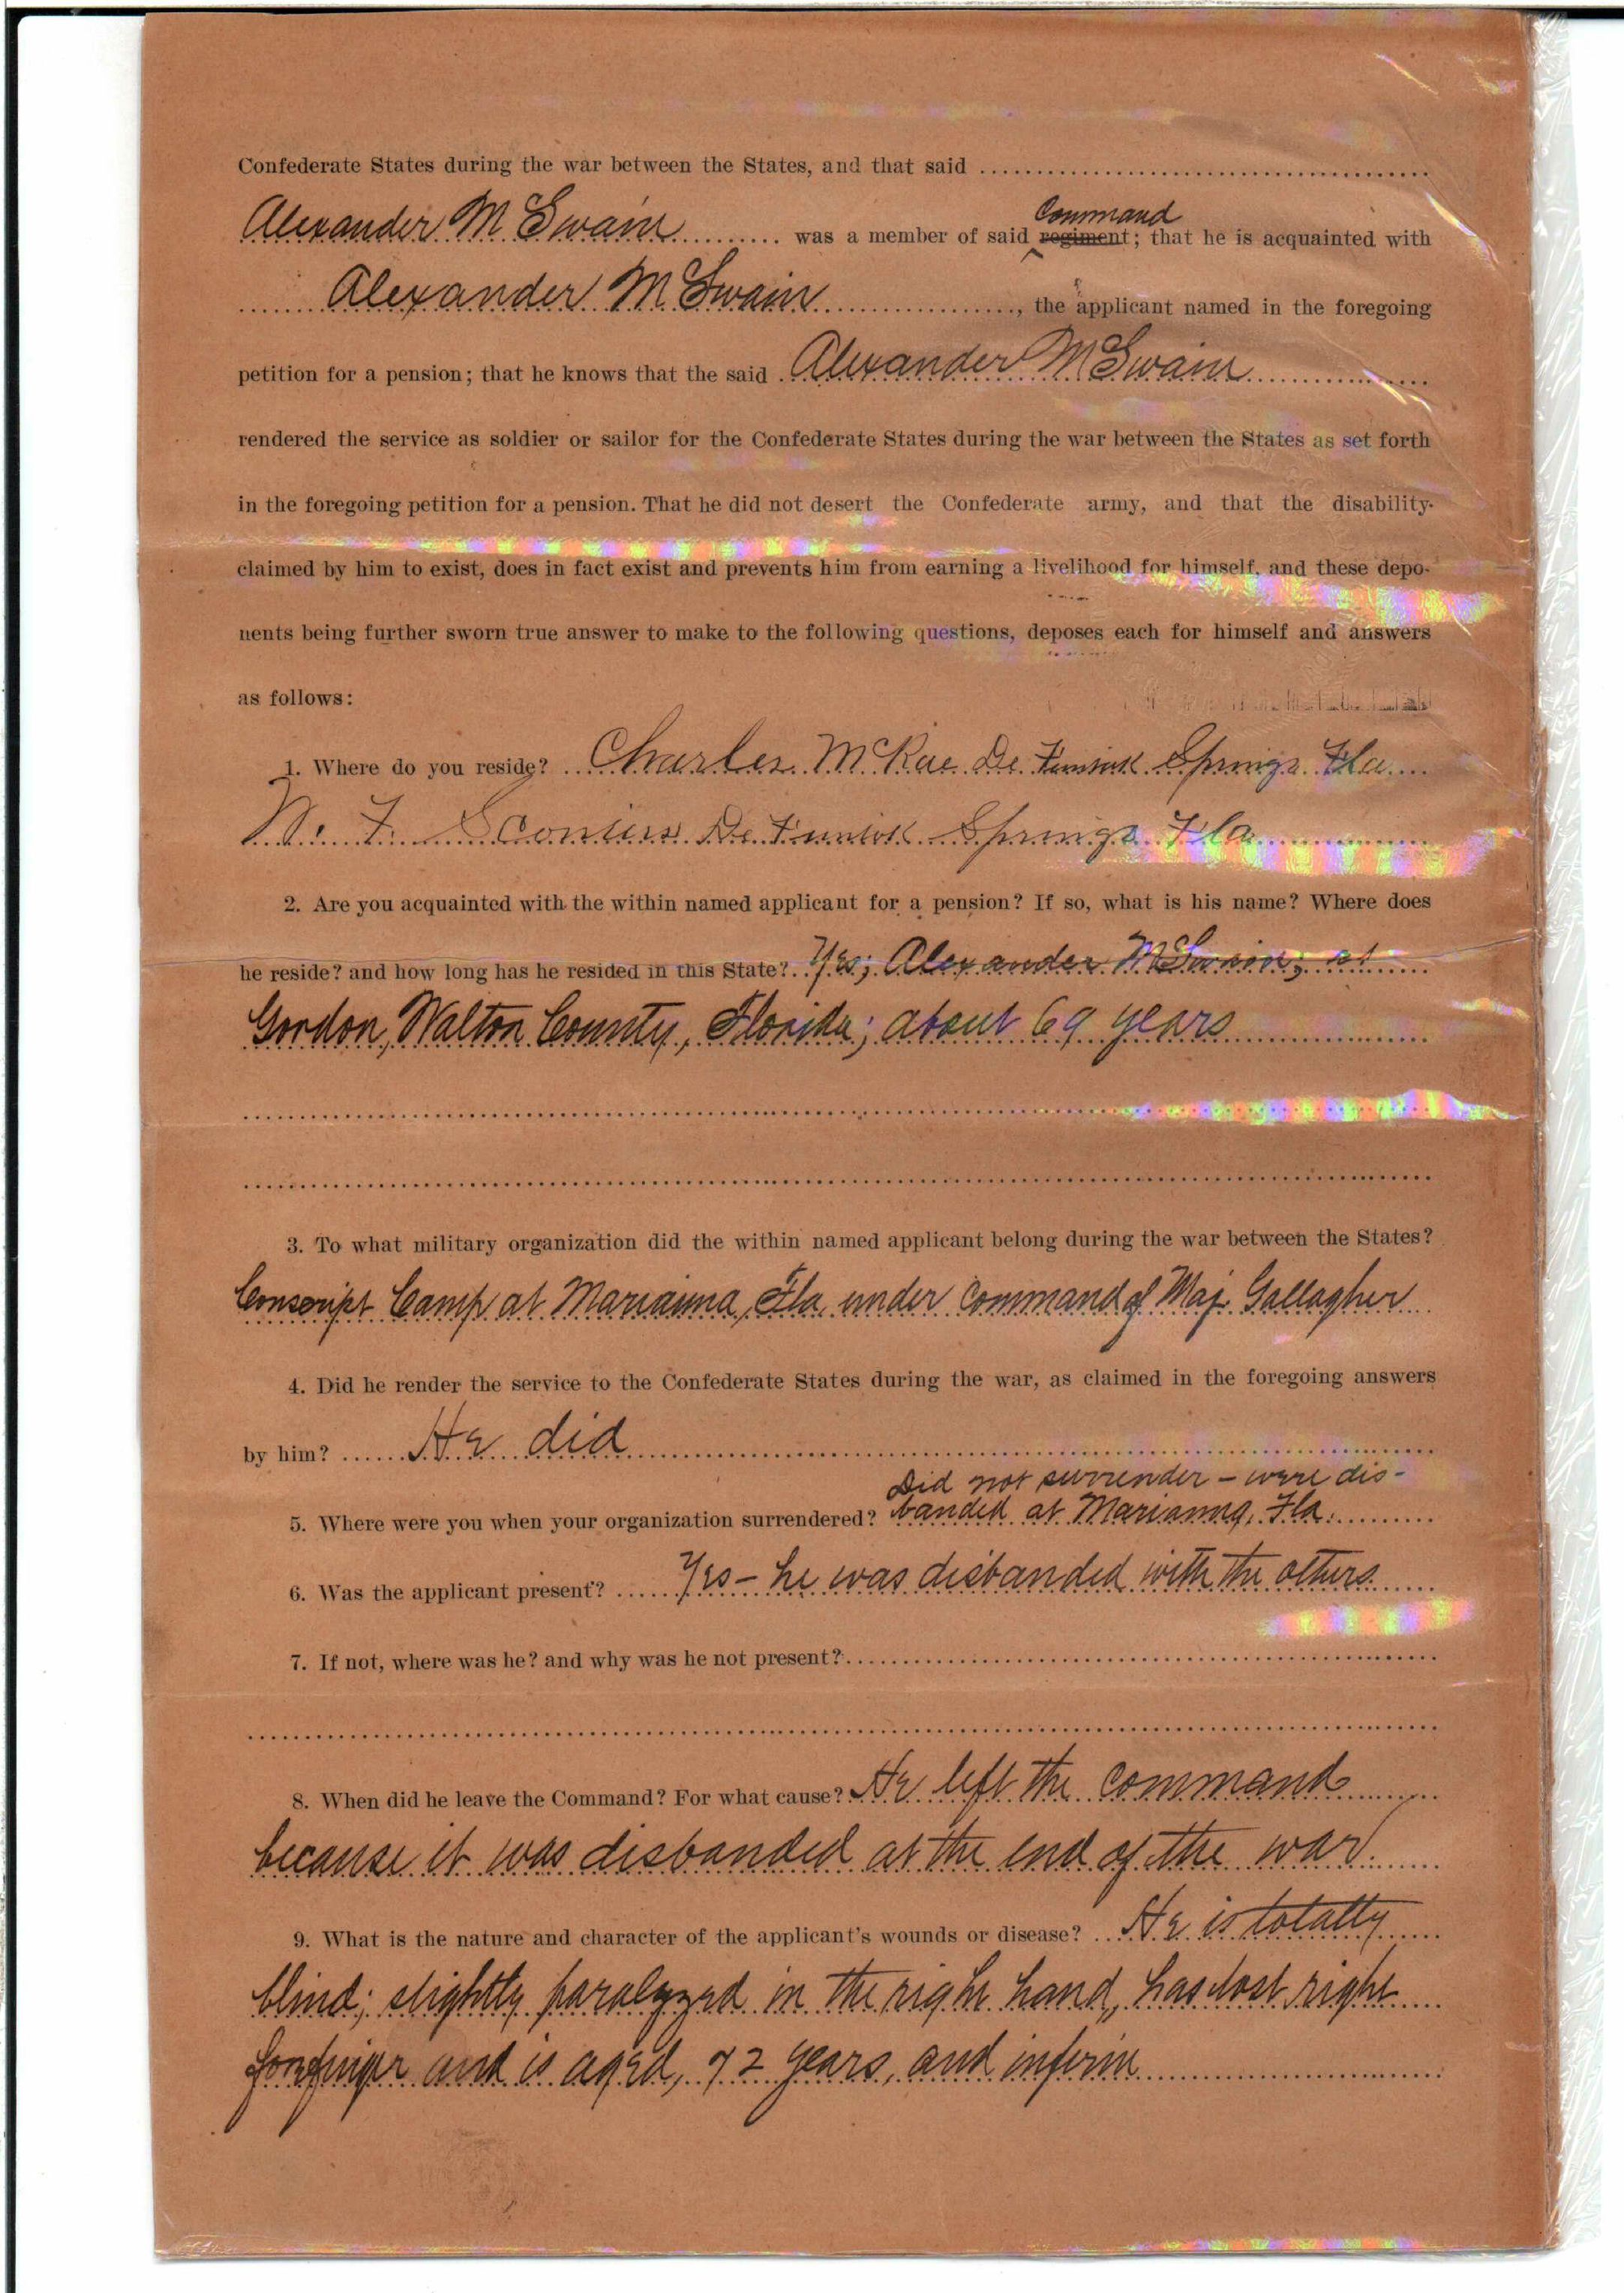 Confederate States during the war between the States, and that said
Alexander McSwain was a member of said Command regiment; that he is acquainted with
Alexander McSwain, the applicant named in the foregoing
petition for a pension; that he knows that the said Alexander McSwain
rendered the service as soldier or sailor for the Confederate States during the war between the States as set forth
in the foregoing petition for a pension. That he did not desert the Confederate army, and that the disability
claimed by him to exist, does in fact exist and prevents him from earning a livelihood for himself, and these depo-
nents being further sworn true answer to make to the following questions, deposes each for himself and answers
as follows:
1. Where do you reside? Charles McRae De Funiak Springs Fla
De Funiak Springs Fla
2. Are you acquainted with the within named applicant for a pension? If so, what is his name? Where does
he reside? and how long has he resided in this State? Yes; Alexander McSwain; at
Gordon, Walton County, Florida; about 69 years
3. To what military organization did the within named applicant belong during the war between the States?
Conscript Camp at Marianna, Fla. under command of Maj. Gallagher
4. Did he render the service to the Confederate States during the war, as claimed in the foregoing answers
by him? He did
Did not surrender - were dis-
5. Where were you when your organization surrendered? banded at Marianna, Fla.
6. Was the applicant present? Yes - he was disbanded with the others
7. If not, where was he? and why was he not present?
8. When did he leave the Command? For what cause? He left the command
because it was disbanded at the end of the war.
9. What is the nature and character of the applicant's wounds or disease? He is totally
blind; slightly paralyzed in the right hand, has lost right
forefinger and is aged, 72 years, and infirm